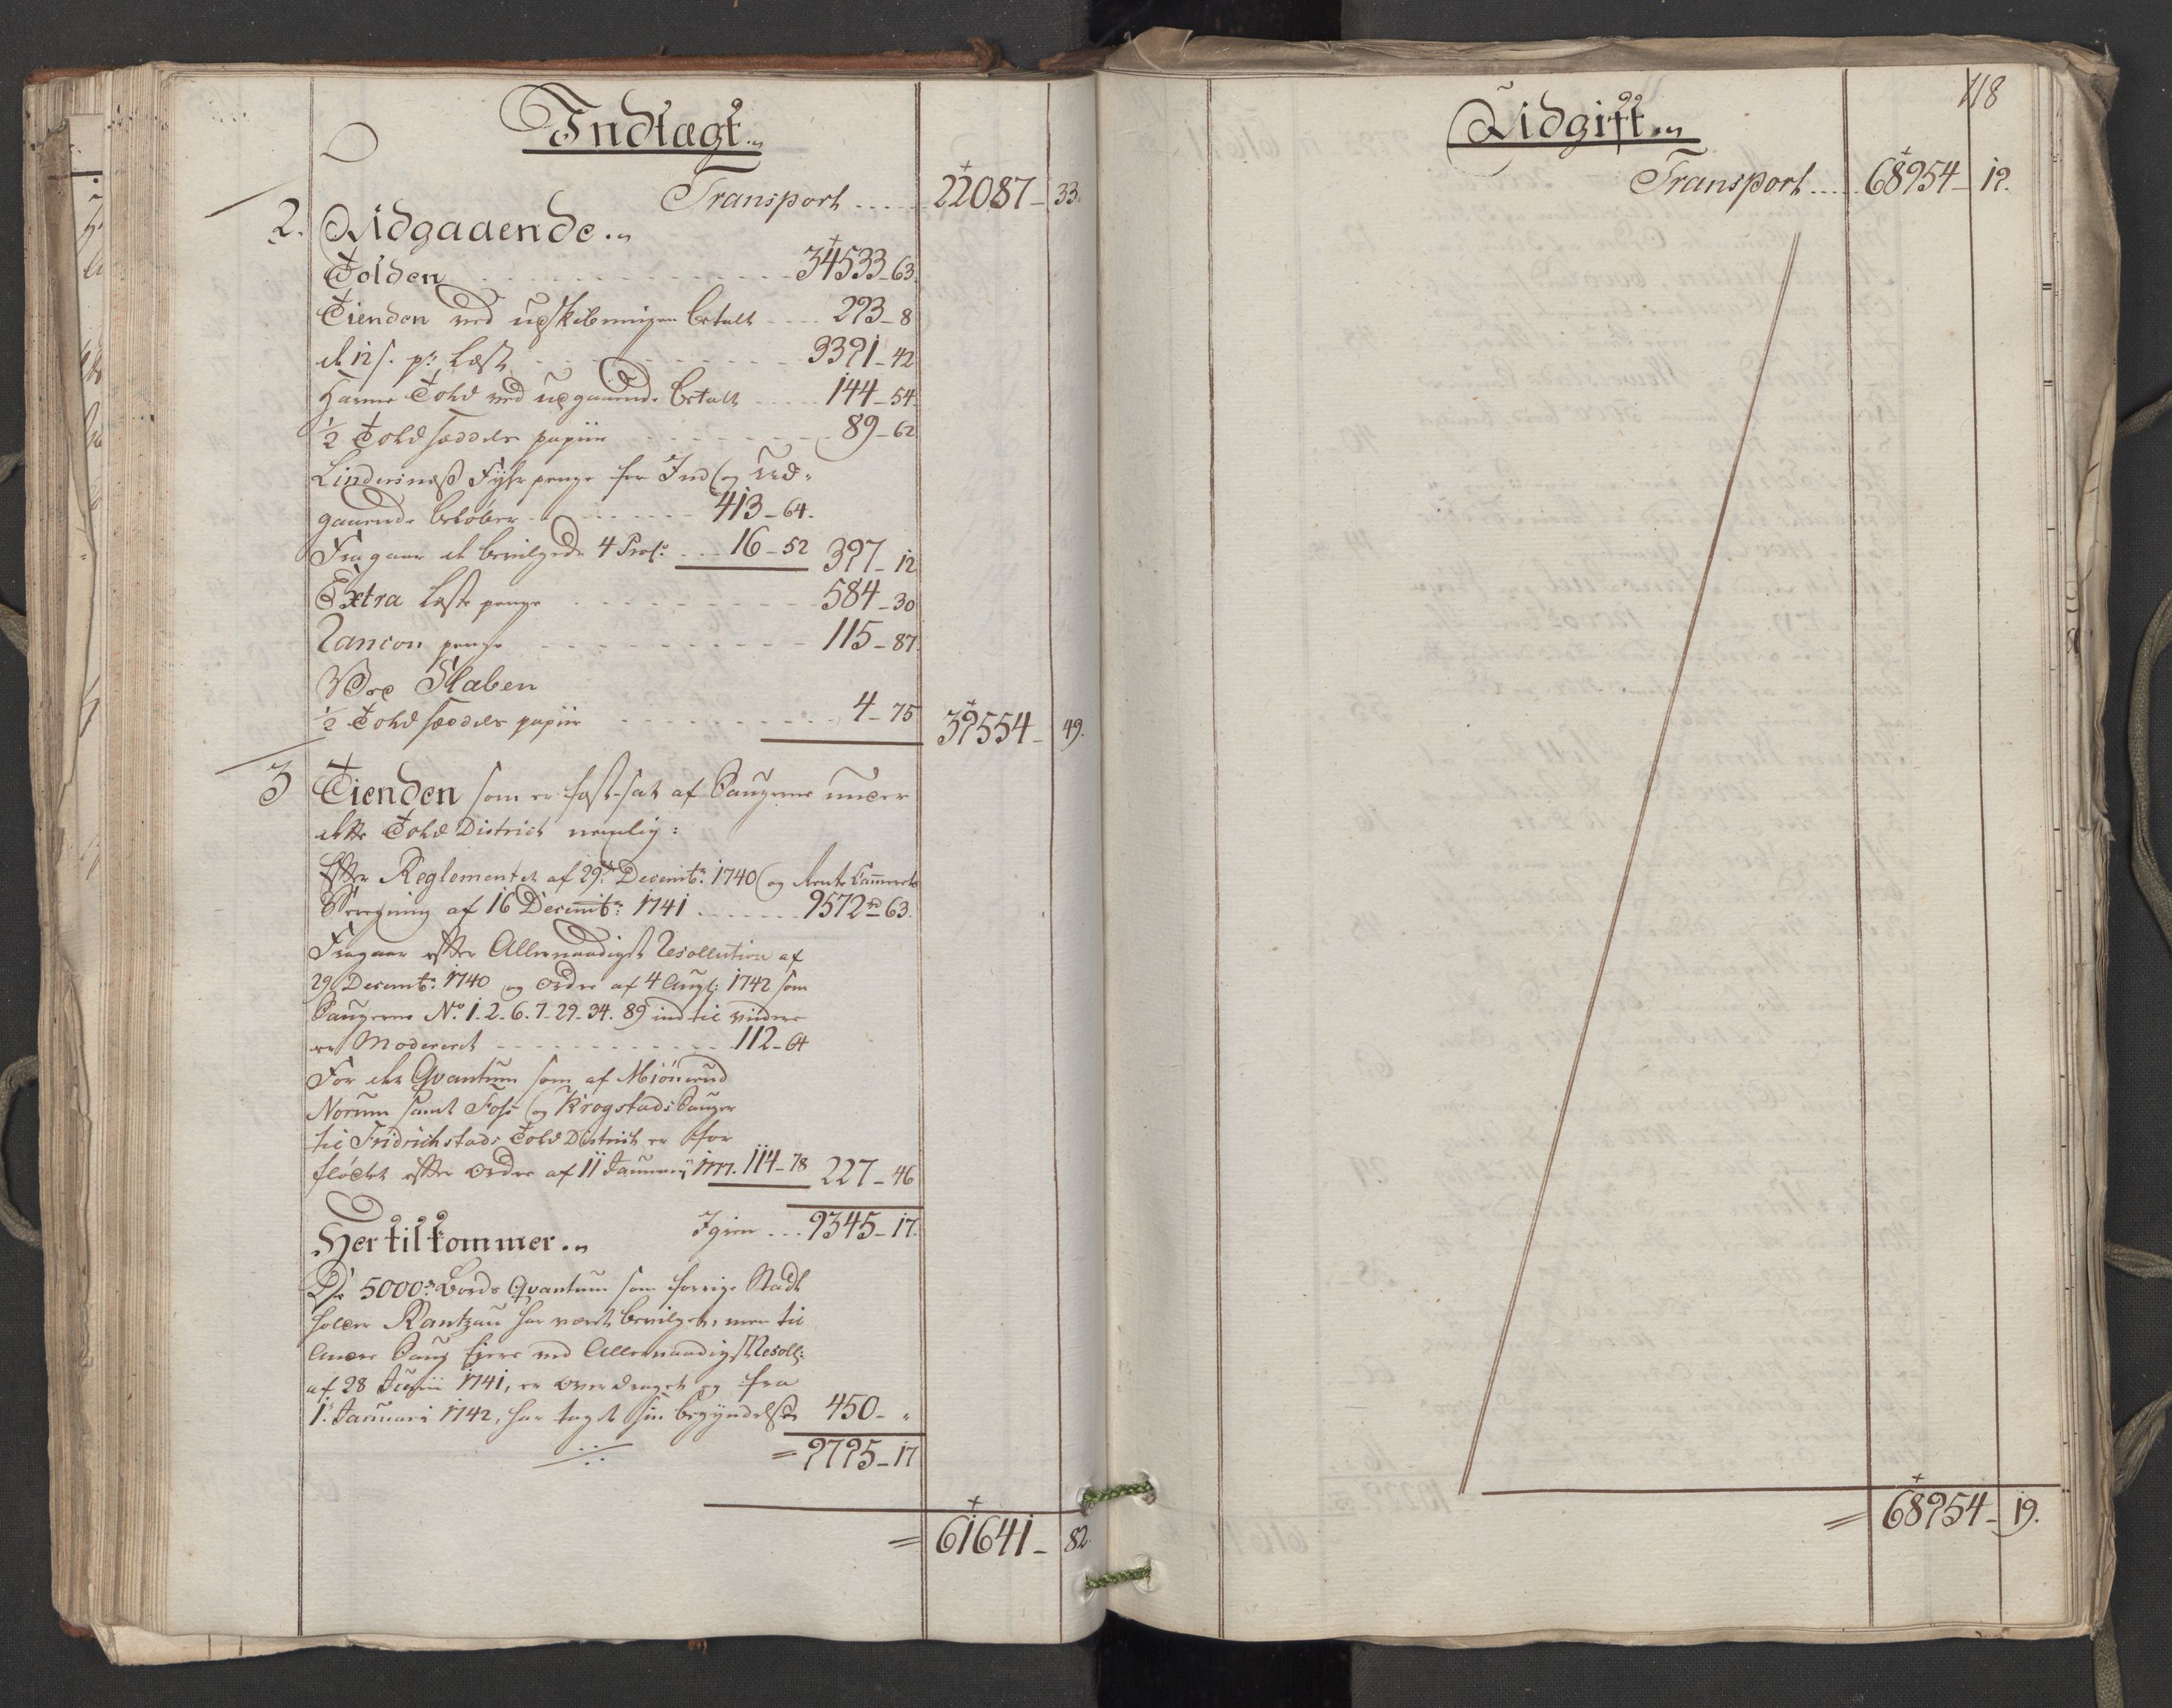 Indtægt
Transport ..... 22087 - 33.
2. Udgaaende
Tolden - - - - 34533 - 63.
Tienden ved udskibningen betalt - - - - 293 - 8
de 12 s. pr Læst - - - - 3391 - 42
Hanne Told ved udgaaende betalt - - - - 144 - 54.
1/2 Told sæddels papiir - - - - 89 - 62
Lindersness Fyhr penge for Ind og Ud-
gaaende beløber - - - - 413 - 64.
Fragaar de bevilgede 4 Proc: - - - 16 - 52 397 - 12
Extra Læste penge - - - - 584 - 30
Rancon penge - - - - 115 - 87.
Ved Slæben
1/2 Told sæddels papiir - - - - 4 - 75 39554 - 49.
3 Tienden som er fast-sat af Saugerne under
dette Told District nemlig:
Efter Reglementet af 29de Decembr: 1740 og Rente Cammerets
Beregning af 16 Decembr: 1741 ....... 9572 rd 63.
Fragaar efter Allernaadigst Resollution af
29 Decembr: 1740 og Ordre af 4 Augt: 1742 som
Saugerne No. 1-2-6.7-29-34. 89 ind til videre
er Modereret - - - - 112 - 64
For det Qvantum som af Miönerud
Norum samt Foss og Krogstads Sauger
til Fridrichstads Told District er for
fløttet efter Ordre af 11 Januarij 1777. 114 - 78 227 - 46
Igien ... 9345 - 17.
Her til kommer
De 5000de Bords Qvantum som forrige Stadt
holder Rantzau har været bevilget, men til
andre Saug Ejere ved Allernaadigst Resoll:
af 28 Junii 1741, er overdraget og fra
1. Januari 1742, har taget sin begyndelse 450 - "
= 9795 - 17
= 61641 - 82.
118
Udgift
Transport .... 68954 - 19.
= 68954 - 19.